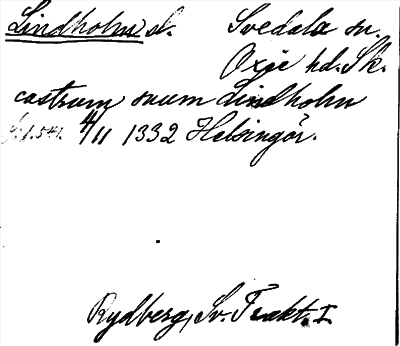 Lindholm sl. Svedala sn.
Oxie hd. Sk.
castrum suum Lindholm
4/11 1332 Helsingör.
Rydberg, Sv. Trakt. I.